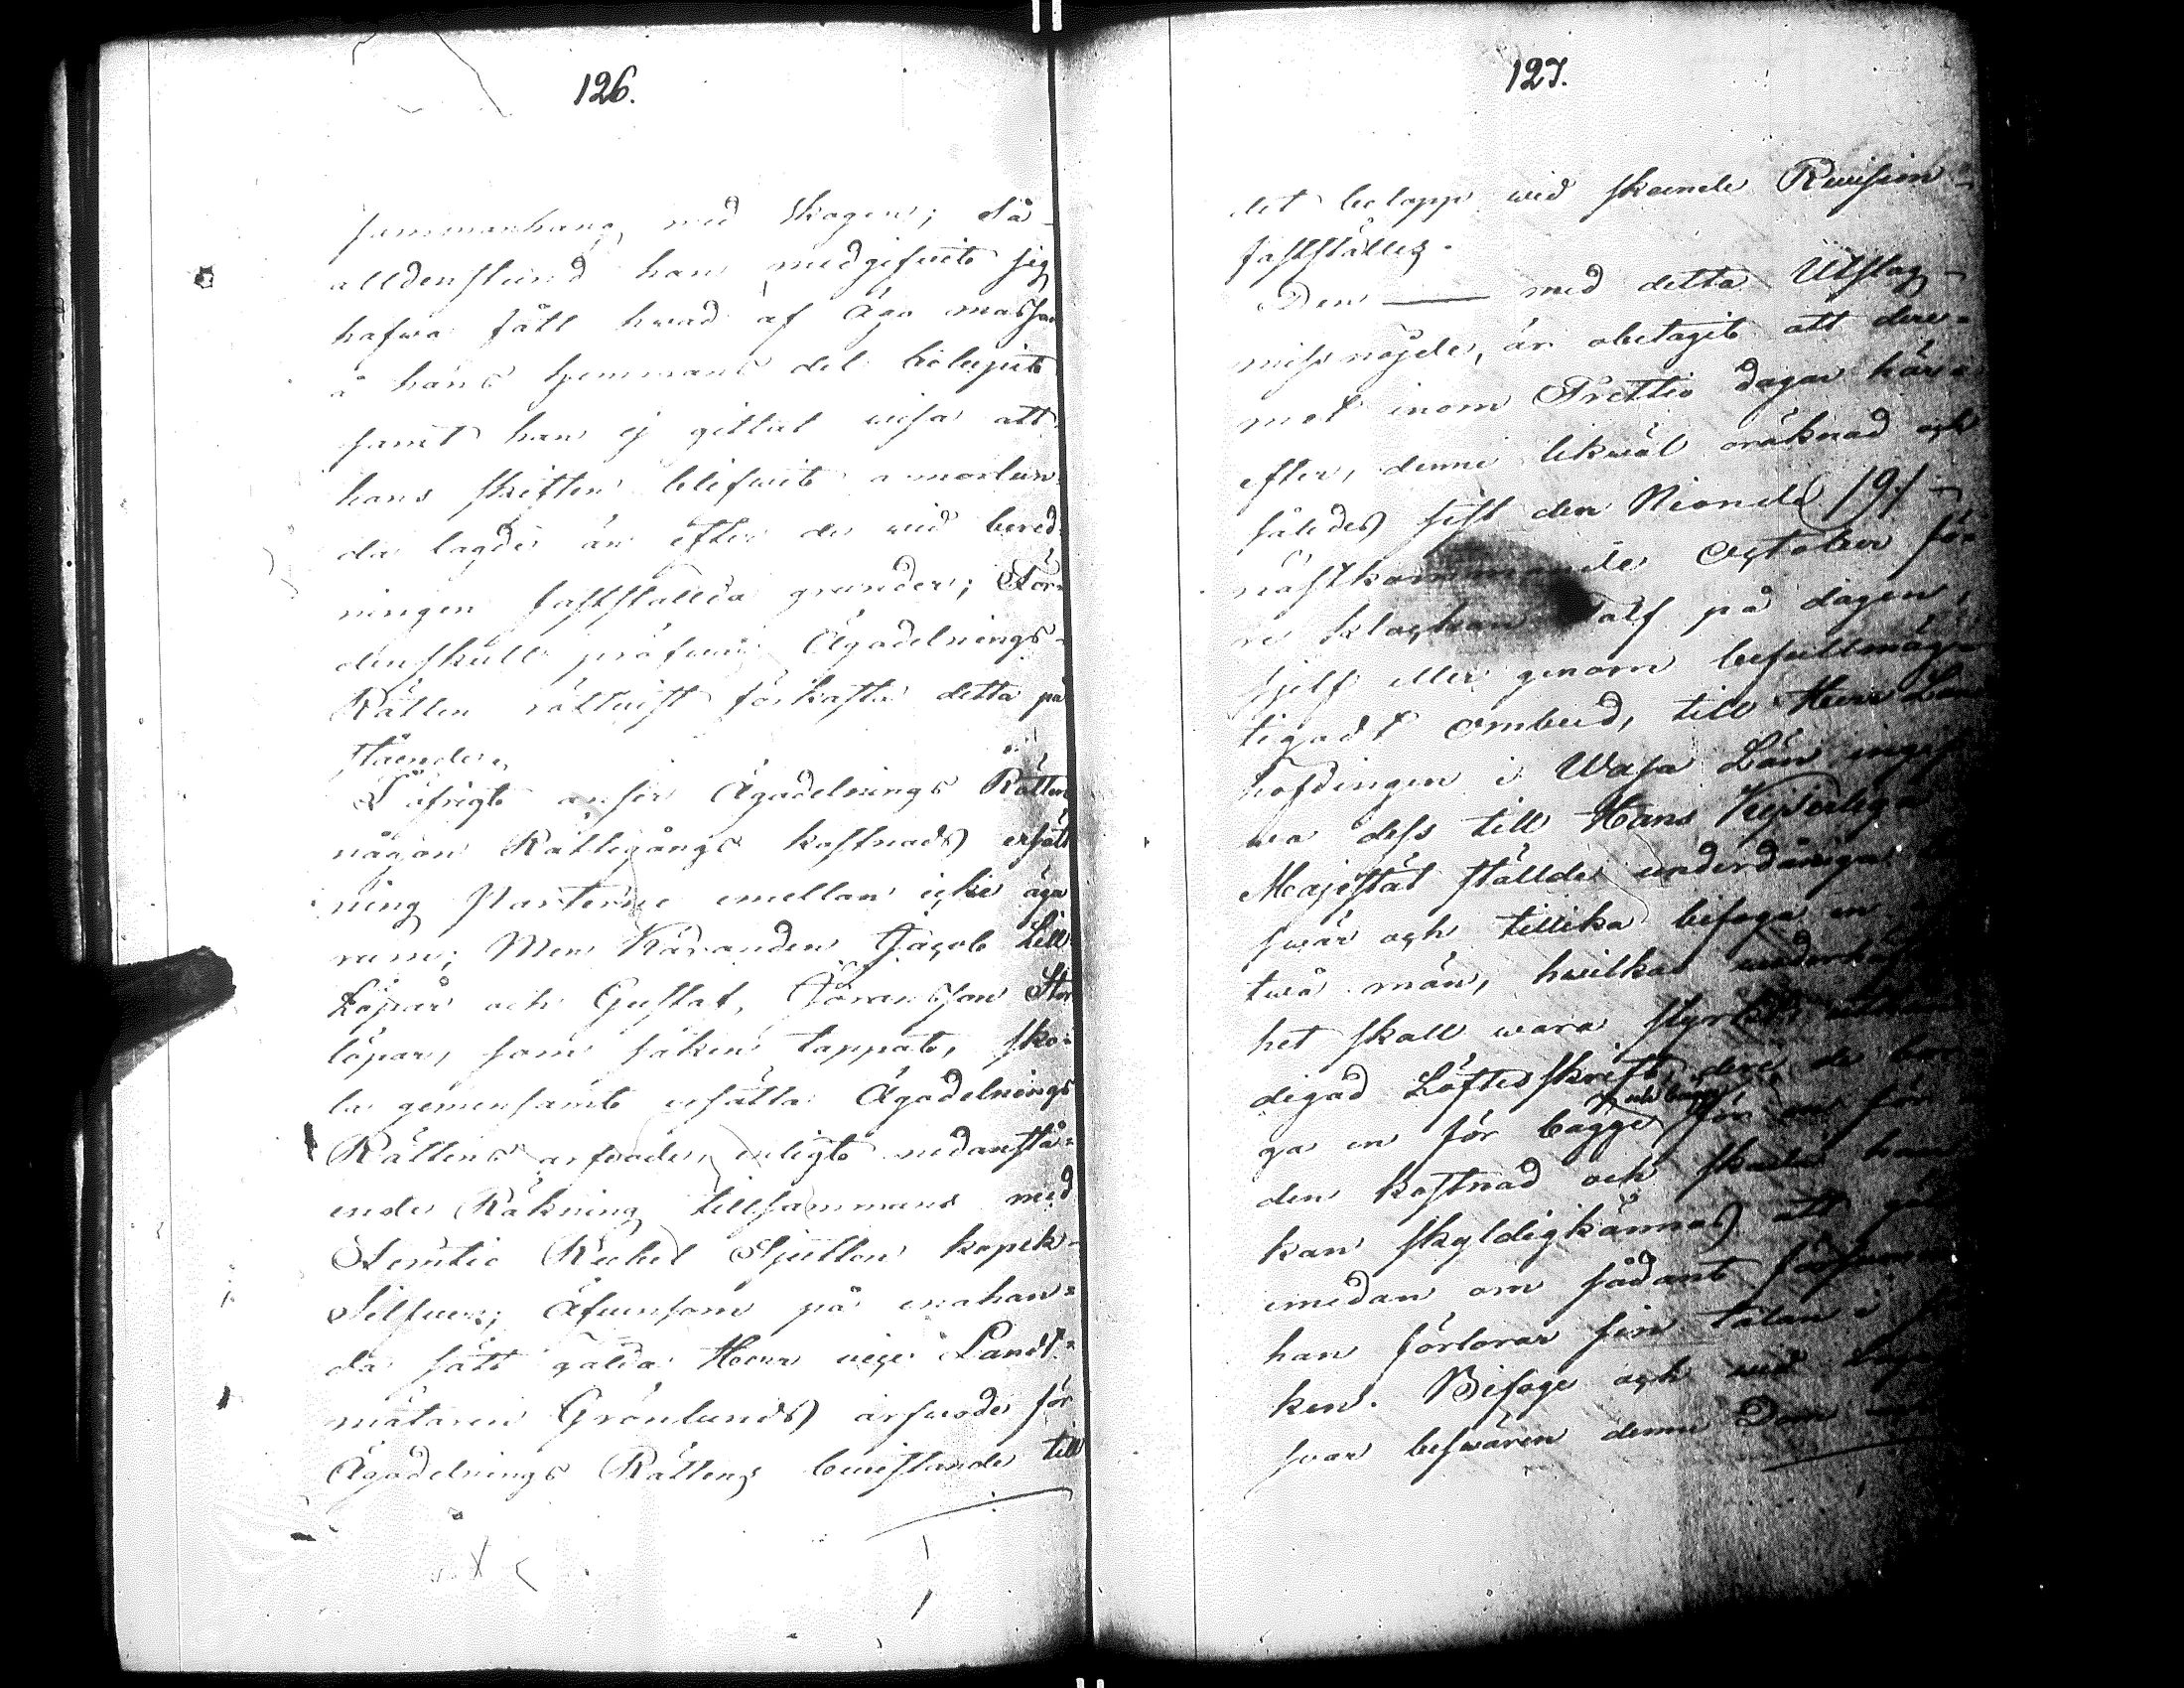 126.
sammanhang med skogen; Så-
alldenstund han medgifwit sig
hafwa fått hwad af Ägo massan
å hans hemmans del belupit
samt han ej gittat wisa att
hans skiften blifwit annorlun
da lagde än efter de wid bered
ningen fastställda grunder; För-
denskull pröfwar Ägodelnings-
Rätten rättwist förkasta detta på
stående.
I öfrigt anser Ägodelnings Rätten
någon Rättegångs kostnads ersätt
ning Parterne emellan icke äga
rum; Men Käranden Jacob Lill
Löpar och Gustaf Göransson Stor
löpar, som saken tappat, sko-
la gemensamt ersätta Ägodelnings
Rättens arfvode, enligt nedanstå-
ende Räkning tillsammans med
Femtio Rubel Sjutton kopek
Silfwer; Äfwensom på enahan-
da sätt gälda Herr vice Landt-
mätaren Grönlunds arfwode för
Ägodelnings Rättens bewistande till
127.
det belopp wid skeende Revision
fastställes.
Den — med detta Utslag
missnöjde, är obetagit att dere-
mot inom Trettio dagar här-
efter, denne likwäl oräknad och
således sist den Nionde /9/
nästkommande October fö-
re klockan Tolf på dagen,
sjelf eller genom befullmäg-
tigadt ombud, till Herr Lands
höfdingen i Wasa Län ingif
wa dess till Hans Kejserliga
Majestät ställde underdåniga be
swär och tillika bifoga en
twå män, hwilkas wederhäf
het skall wara styrkt,
digad Löftesskrift, dere de bor
ga en för begge och begge för en för
den kostnad och skada han
kan skyldigkännas att gäl
emedan om sådant försummas
han förlorar sin talan i sa
ken. Bifoge ock wid
swar beswären denne Dom